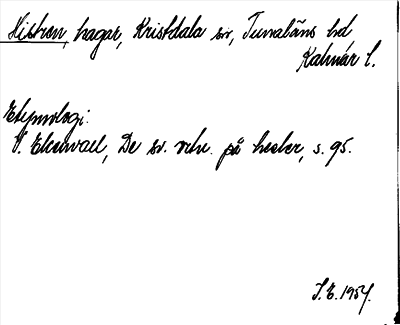 Histren, hagar, Kristdala sn, Tunaläns hd
Kalmar l.
Etymologi:
V. Ekenvall, De sv. ortn. på hester, s. 95.
S.E. 1954.